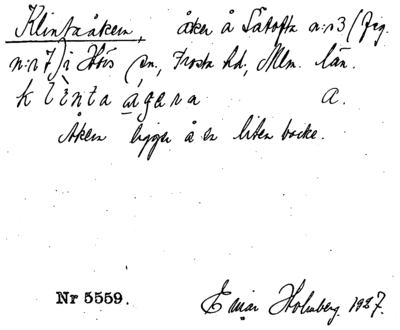 Klintaåkern, åker å Sätofta n:r 3 (fig.
n:r 7) i Hörs sn, Frosta hd, Mlm. län.
klìnta ágəra A.
Åkern ligger å en liten backe.
Nr 5559. Einar Holmberg. 1927.